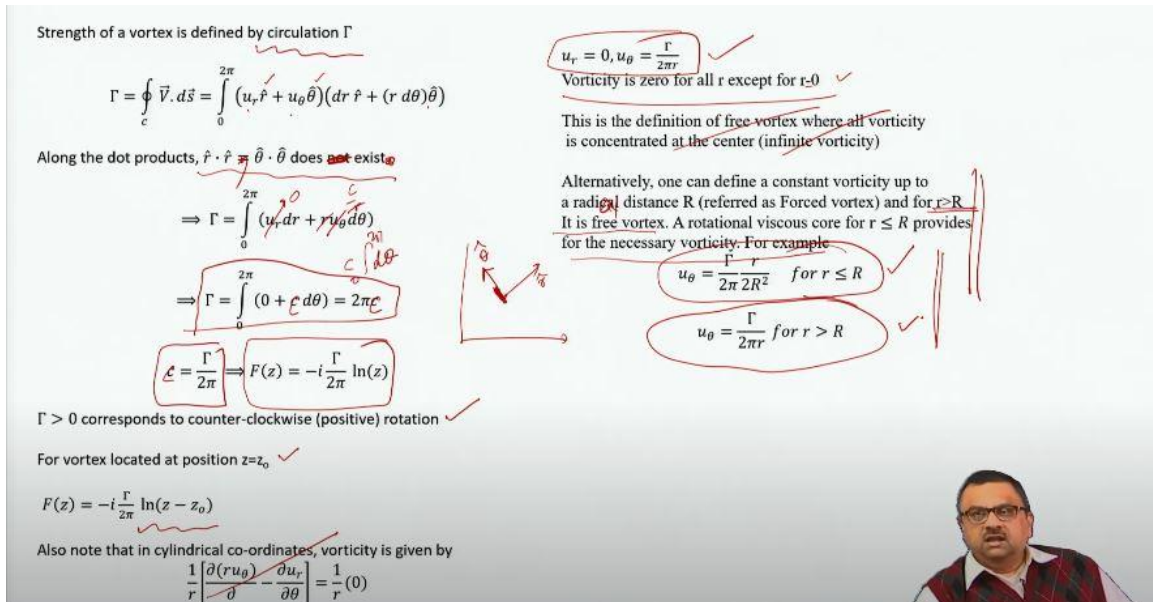 Strength of a vortex is defined by circulation Γ
Γ = ∮_c V⃗.ds⃗ = ∫_0^{2π} (u_r r̂ + u_θ θ̂)(dr r̂ + (r dθ)θ̂)
Along the dot products, r̂ · r̂ = θ̂ · θ̂ does not exist
⟹ Γ = ∫_0^{2π} (u_r dr + r u_θ dθ)
0
c
c ∫_0^{2π} dθ
⟹ Γ = ∫_0^{2π} (0 + c dθ) = 2πc
c = Γ/2π ⟹ F(z) = −i Γ/2π ln(z)
Γ > 0 corresponds to counter-clockwise (positive) rotation
For vortex located at position z=z_o
F(z) = −i Γ/2π ln(z − z_o)
Also note that in cylindrical co-ordinates, vorticity is given by
1/r [∂(ru_θ)/∂ − ∂u_r/∂θ] = 1/r (0)
θ̂
r̂
u_r = 0, u_θ = Γ/2πr
Vorticity is zero for all r except for r-0
This is the definition of free vortex where all vorticity
is concentrated at the center (infinite vorticity)
Alternatively, one can define a constant vorticity up to
a radical distance R (referred as Forced vortex) and for r>R
It is free vortex. A rotational viscous core for r ≤ R provides
for the necessary vorticity. For example
u_θ = Γ/2π r/2R² for r ≤ R
u_θ = Γ/2πr for r > R